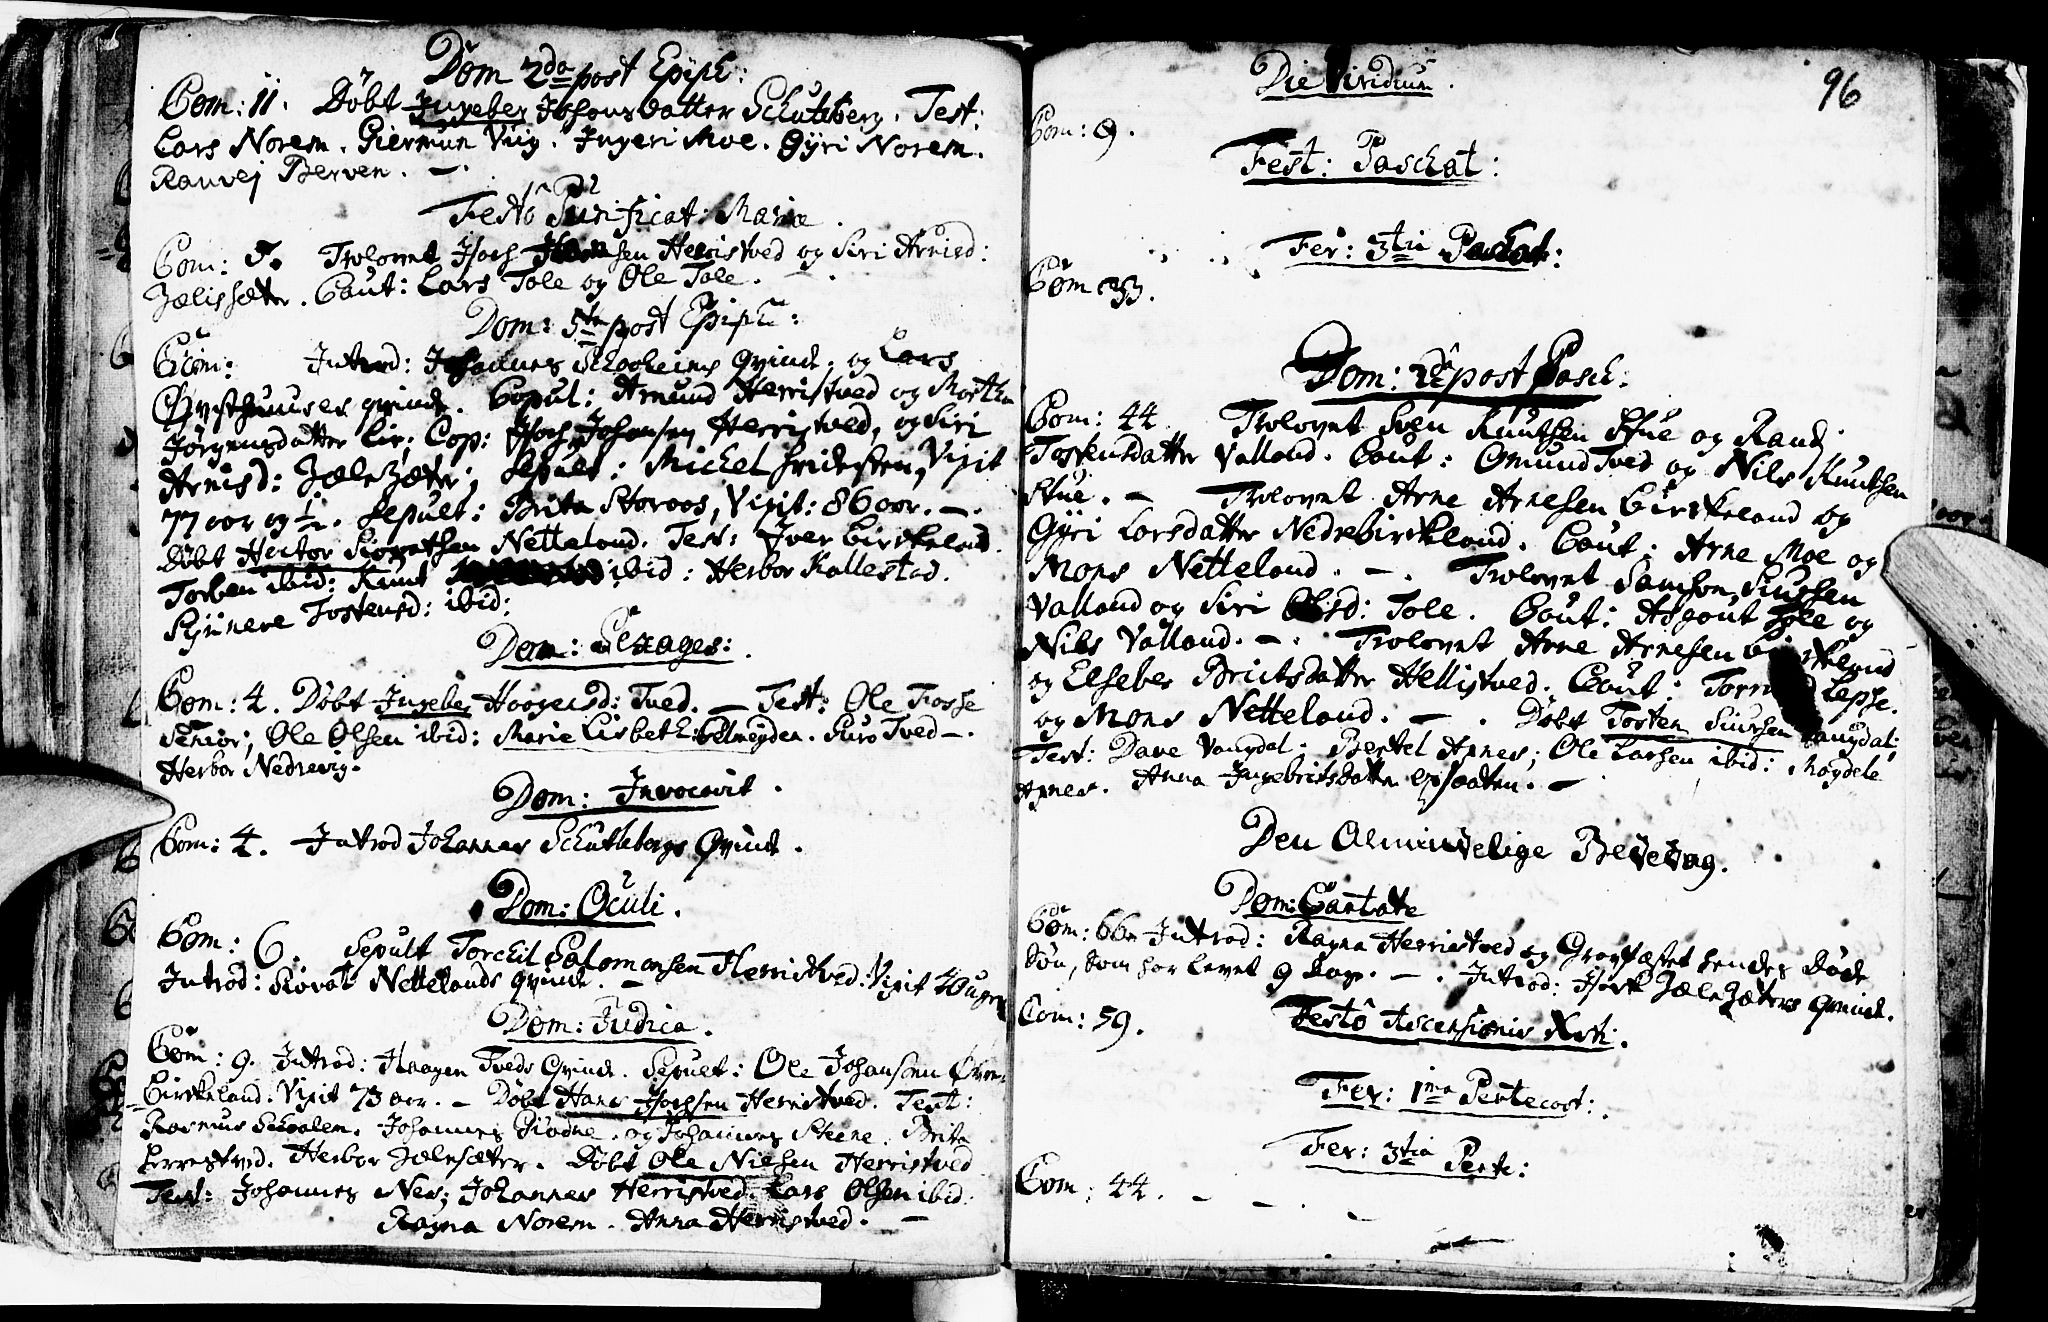 Dom 2da post Epiph:
Com: 11. Döbt Ingeber Johansdatter Schutleberg. Test:
Lars Norem. Giermun Viig. Ingeri Moe. Gÿri Norem.
Ranvej Berven. —.
Festô Purificat: Mariæ.
Com: 5. Trolovet Hersen Herristved og Siri Arnisd:
Jælissæter. Caut: Lars Tole og Ole Tole.
Dom: 5ta post Epiph:
Com: Introd: Johannes Schoeheims qvinde. og Lars
Øvsthuuses qvinde. Copul: Amund Herristved og Martha
Jørgensdatter Cop: Johansen Herristved, og Siri
Arnisd: Jælesæter; Sepult: Michel Vixit
77 aar og ½. Sepult: Brita Storaas, Vixit: 86 aar. —.
Döbt Hector Siovatsen Netteland. Test: Iver Birkeland.
Torben ibid: Knut ibid: Herbor Kallestad.
Torstensd: ibid:
Dom: Sexages:
Com: 4. Döbt Ingeber Haagensd: Tved. — Test: Ole Tosse
Senior; Ole Olsen ibid: Marie Lisbeth Guro Tved —.
Herbor Nedrevig.
Dom: Invocavit.
Com: 4. Introd Johannes Schutlebergs Qvinde.
Dom: Oculi.
Com: 6. Sepult Torchil Salomonsen Herristved. Vixit 40 uger
Introd: Siovat Nettelands qvinde. —
Dom: Judica.
Com: 9. Introd: Haagen Tveds Qvinde. Sepult: Ole Johansen Øvre
Birkeland. Vixit 73 aar. — Döbt Hans Herristved. Test:
Rasmus Schaalem. Johannes og Johannes Steene. Brita
Herristved. Herbor Jælesæter. Döbt Ole Nielsen Herristved
Test: Johannes Nes; Johannes Herristved. Lars Olsen ibid:
Ragna Norem. Anna Herristved. —
96
Die Viridium.
Com: 9.
Fest: Paschat:
Fer: 3tia Paschat:
Com 33.
Dom: 2da post Pasch:
Com: 44. Trolovet Sven Knutsen Stue og Randi
Torstensdatter Valland. Caut: Omund Tved og Nils Knutsen
Stue. — Trolovet Arne Arnesen Birkeland og
Gÿri Larsdatter Nedrebirkeland. Caut: Arne Moe og
Mons Netteland. —. Trolovet Samson Siursen
Valland og Siri Olsd: Tole. Caut: Asgout Tole og
Nils Valland. —. Trolovet Arne Arnesen Birkeland
og Elseber Britsdatter Hellistved. Caut: Lepse.
og Mons Netteland. —. Döbt Torsten Siursen Vangdal;
Test: Dave Vangdal. Bertel Apnes; Ole Larsen ibid: Magdele
Apnes. Anna Ingebritsdatter —
Den Almindelige Bededag.
Dom: Cantate
Com: 66. Introd: Ragna Herristved og Gravfæstet hendes döde
Sön, som har levet 9 dage. —. Introd: Jælesæters Qvinde.
Com: 59. Festô Ascensionis Xsti:.
Fer: 1ma Pentecost:.
Fer: 3tia Pente:
Com: 44. — — —